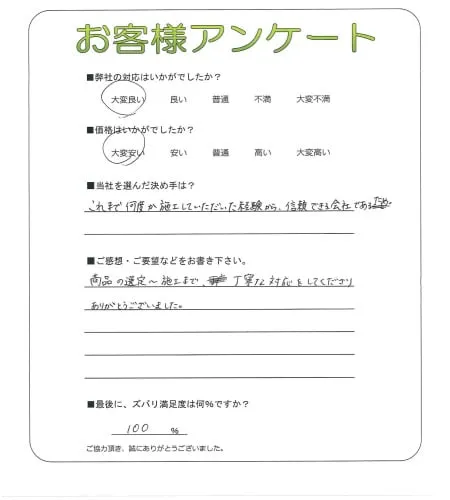 お客様アンケート
■弊社の対応はいかがでしたか？
大変良い 良い 普通 不満 大変不満
■価格はいかがでしたか？
大変安い 安い 普通 高い 大変高い
■当社を選んだ決め手は？
これまで何度か施工していただいた経験から、信頼できる会社であるため
■ご感想・ご要望などをお書き下さい。
商品の選定～施工まで、丁寧な対応をしてくださり
ありがとうございました。
■最後に、ズバリ満足度は何％ですか？
100 ％
ご協力頂き、誠にありがとうございました。